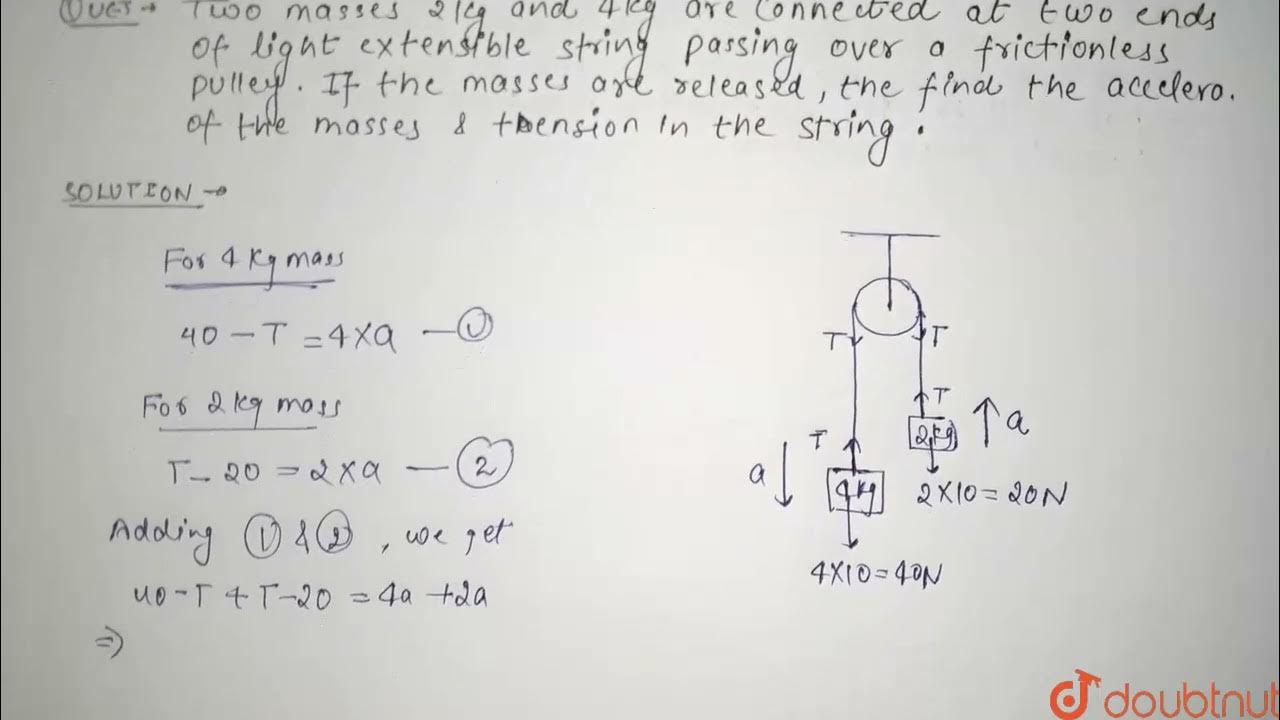 QUES → Two masses 2 kg and 4 kg are connected at two ends
of light extensible string passing over a frictionless
pulley. If the masses are released, the find the accelero.
of the masses & tension in the string.
SOLUTION →
For 4 kg mass
40 - T = 4 × a — ①
For 2 kg mass
T - 20 = 2 × a — ②
Adding ① & ②, we get
40 - T + T - 20 = 4a + 2a
⇒
T
T
T
2 kg
a
T
a
4 kg
2×10 = 20N
4×10 = 40N
doubtnut